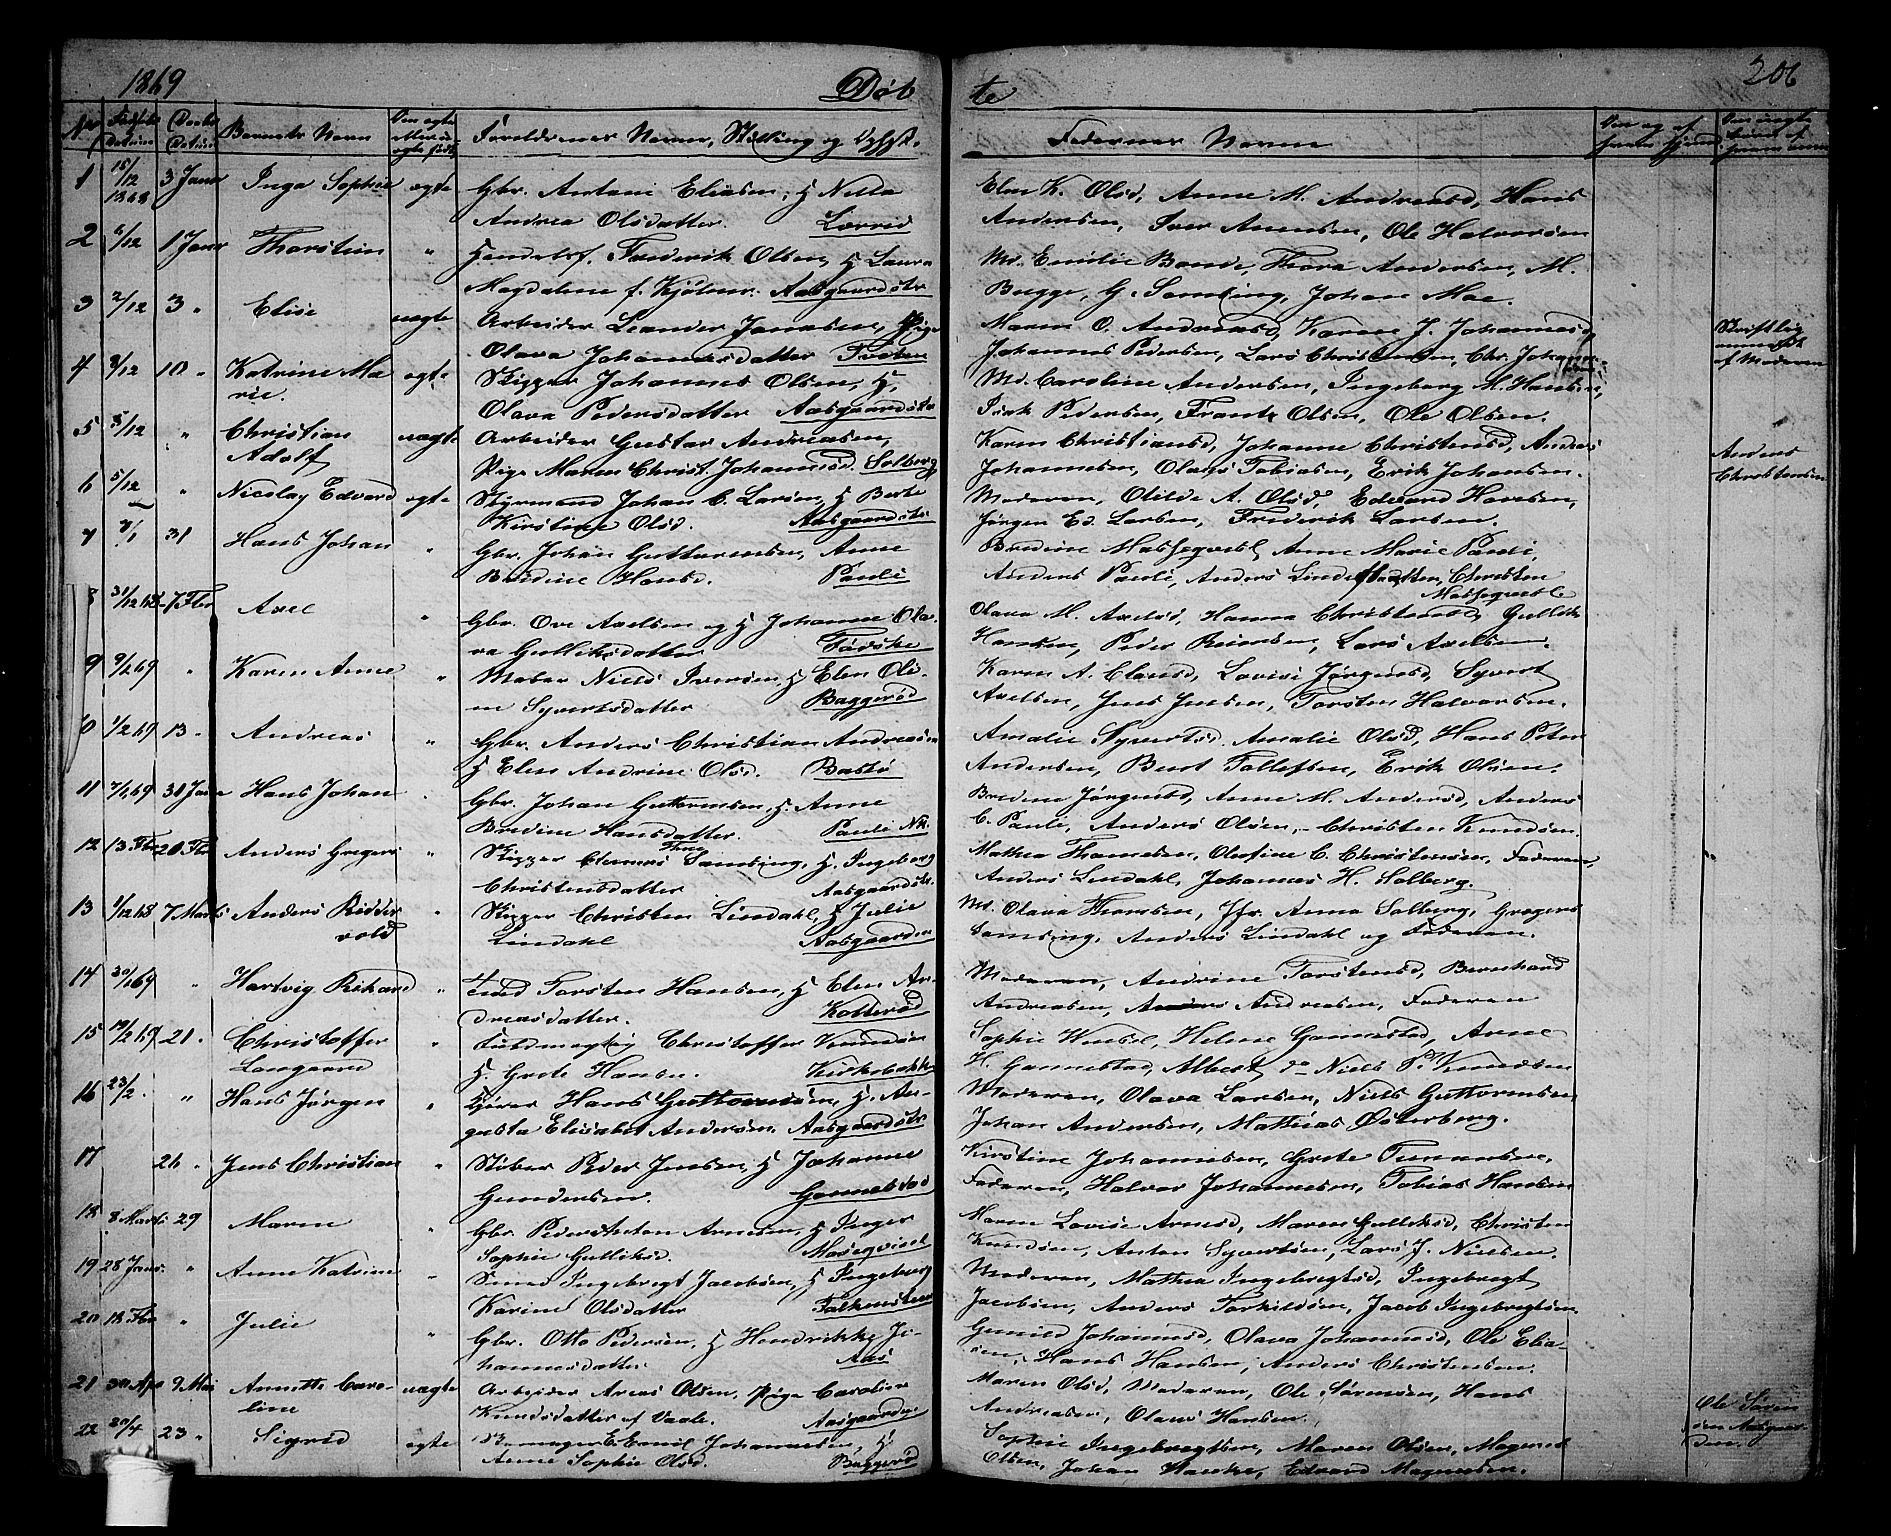 1869
Døb
te
206
No
Fødsels Datum
Daabs Datum
Barnets Navn
Om ægte eller uægte født
Forældrenes Navne, Stilling og
Faddernes Navne
1 15/12 1868 3 Janr Inga Sophie ægte Gbr. Antoni Eliasen, H Netta
Andrea Olsdatter. Lorred
Elen K. Olsd, Anne M. Andreasd, Hans
Andersen, Iver Arnesen, Ole Halvorsen
2 6/12 1 Janr Thorstein " Handelsf. Frederik Olsen, H Laura
Magdalene f. Kjølner. Aasgaardstr
Md. Emilie Bonde, Thora Andersen, M.
Bugge, G. Samsing, Johan Mae.
3 2/12 3 " Elise uægte Arbeider Leander Jonassen, Pige
Olava Johannesdatter Tveten
Maren O. Andreasd, Karen J. Johannesd,
Johannes Pedersen, Lars Christensen, Chr. Johannesen
Skriftlig
anmeldt
af Moderen
4 3/12 10 " Katrine Ma
rie. ægte Skipper Johannes Olsen, H,
Olava Pedersdatter Aasgaardstr
Md. Caroline Andersen, Ingeborg M. Hansen,
Isak Pedersen, Frantz Olsen, Ole Olsen.
5 5/12 " Christian
Adolf uægte Arbeider Gustav Andreasen,
Pige Maren Christ. Johannesd. Solberg
Karen Christiansd, Johanne Christensd, Anders
Johannesen, Olaves Tobiasen, Erik Johansen.
Anders
Christensen
6 5/12 " Nicolay Edvard ægte Styrmand Johan C. Larsen, H Berte
Kirstine Olsd. Aasgaardstr
Moderen, Otilde A. Olsd, Edvard Hansen,
Jørgen Ed. Larsen, Frederik Larsen.
7 7/1 31 Hans Johan " Gbr. Johan Guttormsen, Anne
Bredine Hansd. Pauli
Bredine Massequist, Anne Marie Pauli,
Anders Pauli, Anders Christen
Massequist
8 31/12 68 7 Fbr Axel " Gbr. Ove Axelsen og H Johanne Ola
va GulliksdatterFørske
Olava M. Axelsd, Hanna Christensd, Gullik
Hansen, Peder Reiersen, Lars Axelsen.
9 9/2 69 " Karen Anne " Maler Niels Iversen, H Elen Oli
ne Syvertsdatter Baggerød
Karen A. Clausd, Lovise Jørgensd, Syvert
Axelsen, Jens Jensen, Torsten Halvorsen.
10 1/2 69 13 " Andreas " Gbr. Anders Christian Andreasen
H Elen Andrine Olsd. Bastø
Amalie Syvertsd. Amalie Olsd, Hans Peter
Andersen, Bent Tollefsen, Erik Olsen.
11 7/1 69 31 Janr Hans Johan " Gbr. Johan Guttormsen, H. Anne
Bredine Hansdatter. Pauli
Bredine Jørgensd, Anne M. Andersd, Anders
C. Pauli, Anders Olsen, Christen Knudsen.
12 13 Fbr 20 Fbr Anders Gregers " Skipper Clemens Samsing, H. Ingeborg
Christensdatter Aasgaardstr.
Mathea Thomesen, Olufine C. Christensen, Faderen,
Anders Lindahl, Johannes H. Solberg.
13 1/12 68 7 Marts Anders Ridder
vold " Skipper Christen Lindahl, H Julie
Lindahl Aasgaarden
Md. Olava Thomsen, Jfr. Anna Solberg, Gregers
Samsing, Anders Lindahl og Faderen.
14 30/1 69 " Hartvig Rikard " Smed Torsten Hansen, H Elen An
dreasdatter. Kolterød
Moderen, Andrine Torstensd, Bernhard
Andreasen, Anders Andreasen, Faderen
15 19/2 69 21. Christoffer
Langaard " Fuldmægtig Christoffer Knudsen
H. Grete Hansen. Kirkebakke
Sophie Wensel, Helene Gannestad, Arne
H. Gannestad, Albert do Niels P. Knudsen
16 23/2. " Hans Jørgen " Kjører Hans Guttormsen, H. Au
gusta Elisabet Andersen, Aasgaardstr
Moderen, Olava Larsen, Niels Guttormsen
Johan Andersen, Mathias Østerberg.
17 26 " Jens Christian " Støber Peder Jensen, H Johanne
Gundersen. Gannestad
Kirstine Johannesen, Grete
Faderen, Halvor Johannesen, Tobias Hansen
18 8 Marts 29 Maren " Gbr. Peder Anton Arnesen, H Inger
Sophie Gulliksd. Masseqvist
Maren Lovise Arnesd, Maren Gulliksd, Christen
Knudsen, Anton Syvertsen, Lars J. Nielsen.
19 28 Janr " Anne Katrine " Smed Ingebregt Jacobsen, H Ingeborg
Karine Olsdatter Falkensteen
Moderen, Mathea Ingebregtsd, Ingebregt
Jacobsen, Anders Torkildsen, Jacob Ingebregtsen.
20 18 Fbr " Julie " Gbr. Otto Pedersen, H Hendrikke Jo
hannesdatter Aas
Gunild Johannesd, Olava Johannesd, Ole Elia
sen, Hans Hansen, Anders Christensen.
21 30 Apr 9 Mai Annette Caro
line uægte Arbeider Olsen, Pige Caroline
Knudsdatter af Vaale. Aasgaarden
Maren Olsd, Moderen, Ole Sørensen, Hans
Andreasen, Olaus Hansen.
Ole Søren
sen Aasgaar
den.
22 30/4 23 " Sigrid ægte E. Emil Johannesen, H
Anne Sophie Olsd. Baggerød
Sophie Ingebregtsen, Maren Olsen, Magnus
Olsen, Johan Hanche, Edvard Magnussen.